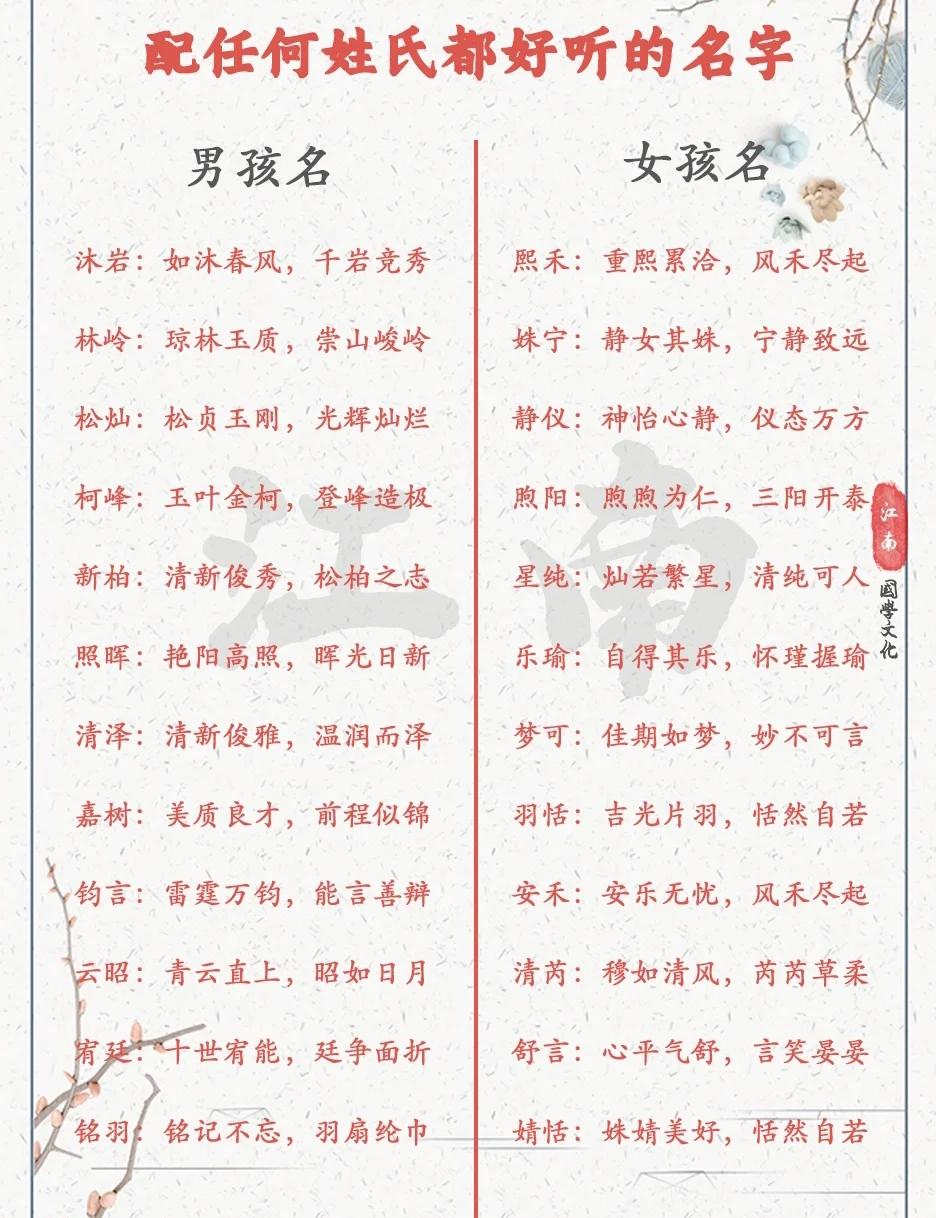 配任何姓氏都好听的名字
男孩名
沐岩：如沐春风，千岩竞秀
林岭：琼林玉质，崇山峻岭
松灿：松贞玉刚，光辉灿烂
柯峰：玉叶金柯，登峰造极
新柏：清新俊秀，松柏之志
照晖：艳阳高照，晖光日新
清泽：清新俊雅，温润而泽
嘉树：美质良才，前程似锦
钧言：雷霆万钧，能言善辩
云昭：青云直上，昭如日月
宥廷：十世宥能，廷争面折
铭羽：铭记不忘，羽扇纶巾
女孩名
熙禾：重熙累洽，风禾尽起
姝宁：静女其姝，宁静致远
静仪：神怡心静，仪态万方
煦阳：煦煦为仁，三阳开泰
星纯：灿若繁星，清纯可人
乐瑜：自得其乐，怀瑾握瑜
梦可：佳期如梦，妙不可言
羽恬：吉光片羽，恬然自若
安禾：安乐无忧，风禾尽起
清芮：穆如清风，芮芮草柔
舒言：心平气舒，言笑晏晏
婧恬：姝婧美好，恬然自若
江南
江南
國學文化